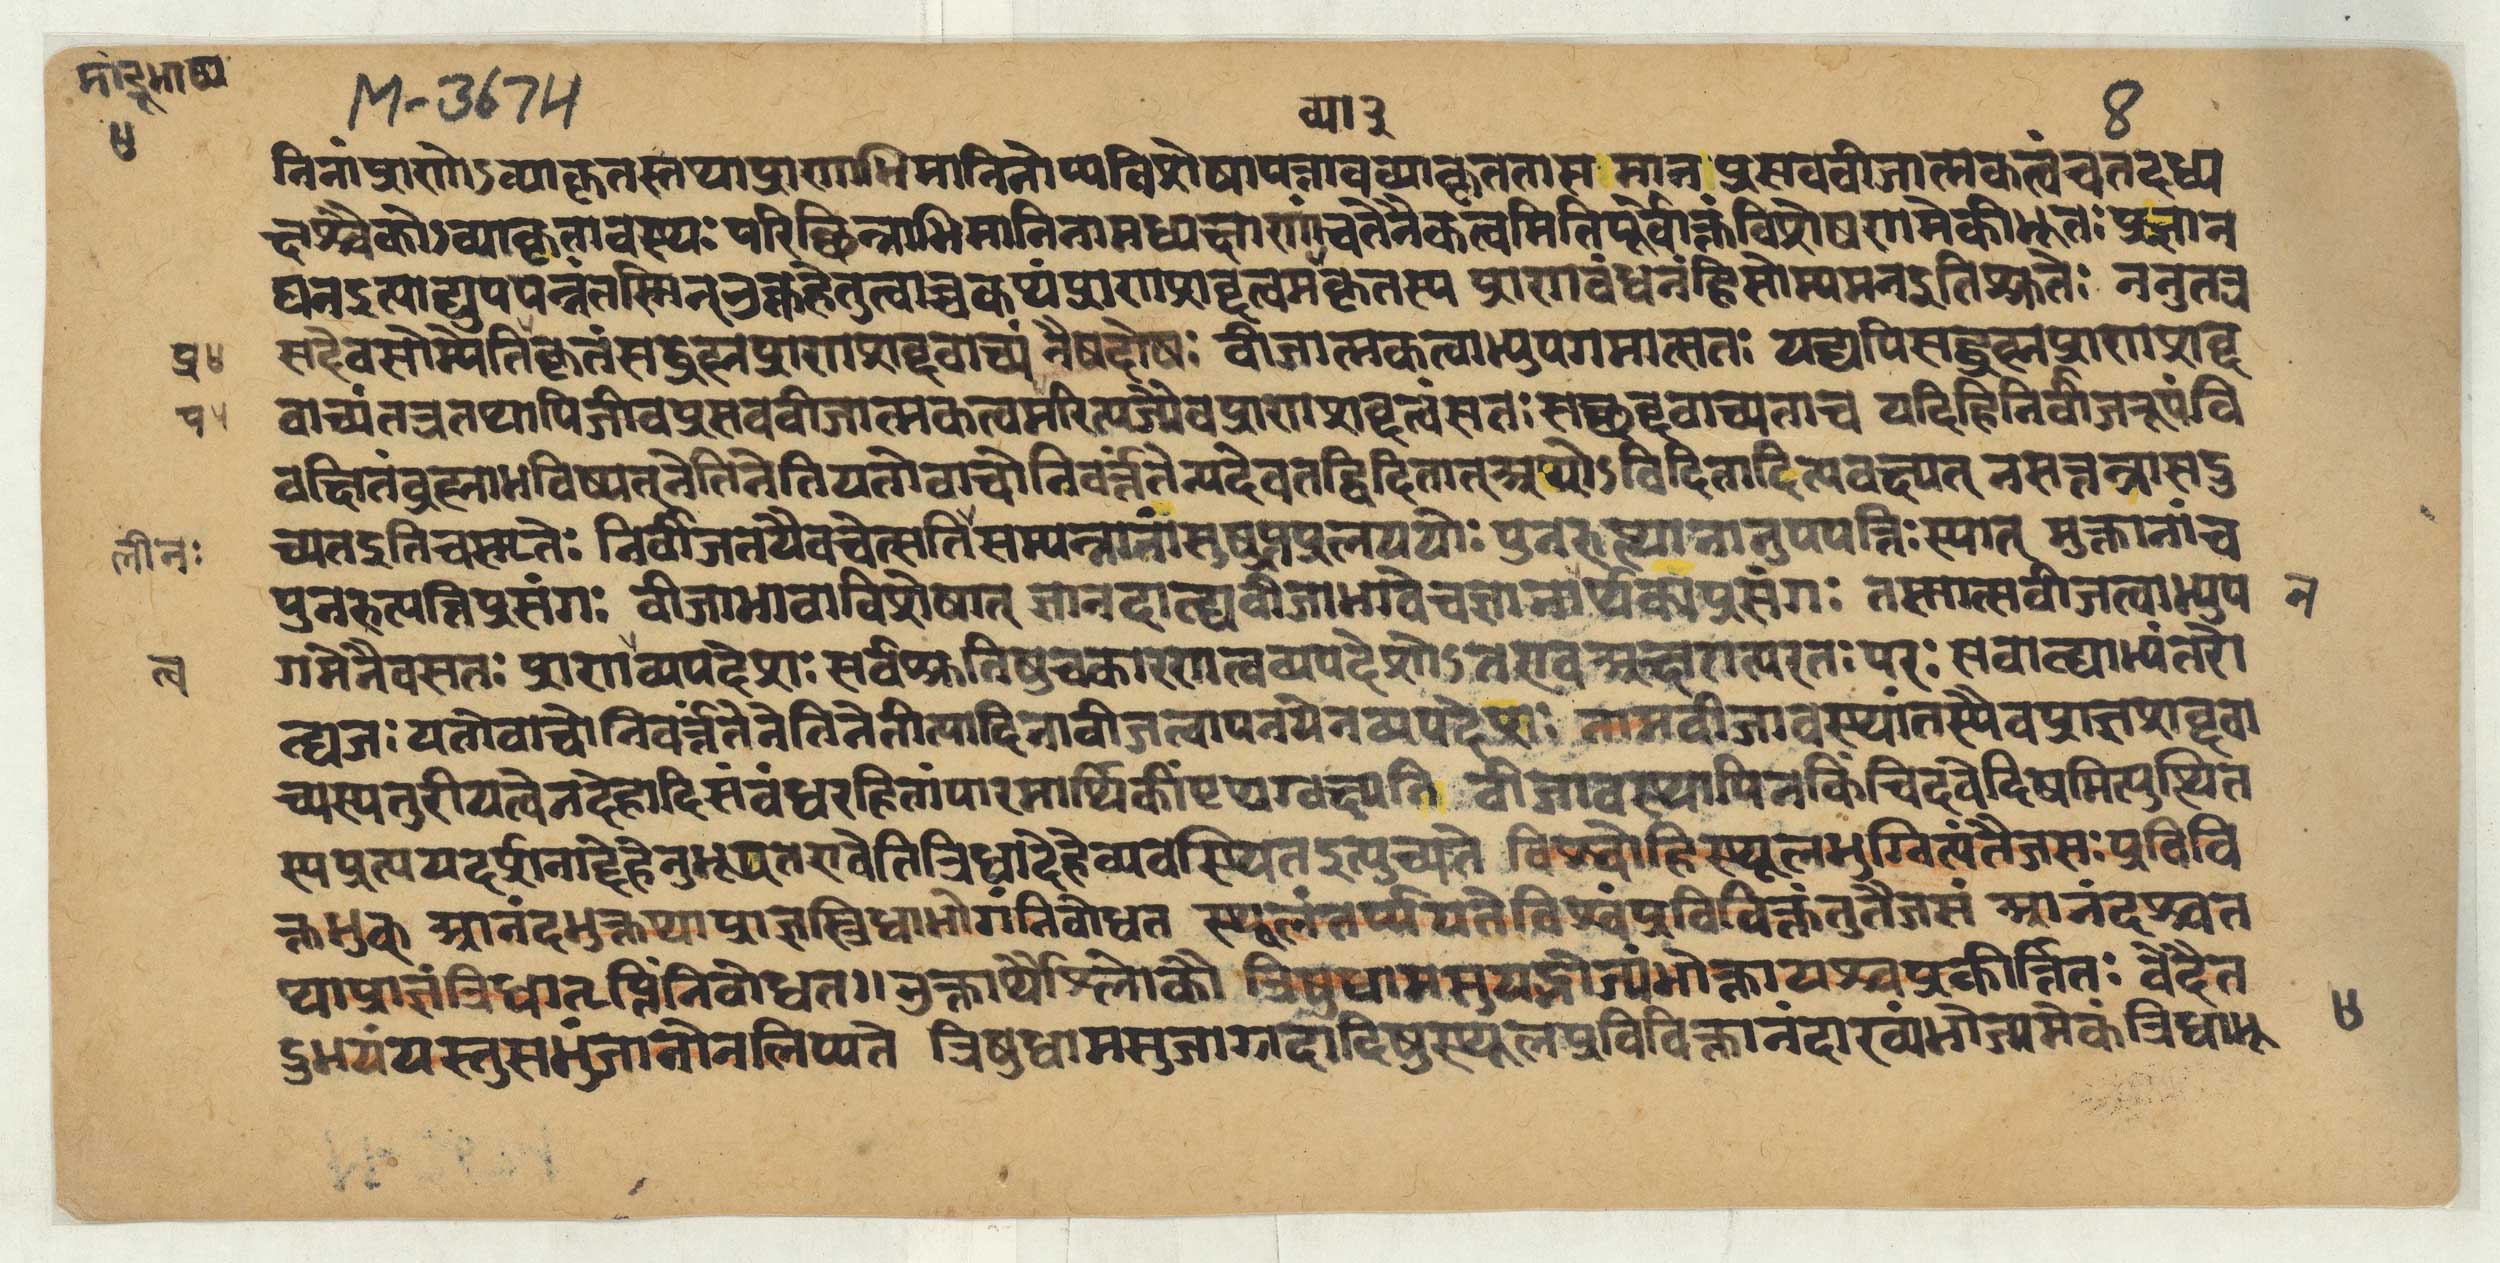 मांडूभाष्य
४
M-3674
व्या ३
8
निनां प्राणोऽव्याकृतस्तथाप्राणाभिमानिनोप्यविशेषापन्नावव्याकृततासमानप्रसवबीजात्मकत्वंचतदध्य
क्षश्चैकोऽव्याकृतावस्थः परिच्छिन्नाभिमानिनामध्यक्षाणांचतेनैकत्वमितिपूर्वोक्तंविशेषणमेकीभूतः प्रज्ञान
घनइत्याद्युपपन्नंतस्मिन्नुक्तहेतुत्वाच्चकथंप्राणशब्दत्वमव्याकृतस्य प्राणबंधनंहिसोम्यमनइतिश्रुतेः ननुतत्र
प्र४ सदेवसोम्येतिकृतंसद्ब्रह्मप्राणशब्दवाच्यं नैषदोषः बीजात्मकत्वाभ्युपगमात्सतः यद्यपिसद्ब्रह्मप्राणशब्द
प५ वाच्यंतत्रतथापिजीवप्रसवबीजात्मकत्वमरित्यज्यैवप्राणशब्दत्वंसतः सच्छब्दवाच्यताच यदिहिनिर्बीजरूपंवि
वक्षितंब्रह्माभविष्यत्नेतिनेतियतोवाचोनिवर्त्तंतेन्यदेवतद्विदितात्अथोऽविदितादित्यवक्ष्यत् नसत्तन्नासदु
लीनः च्यतइतिचस्मृतेः निर्बीजतयैवचेत्सतिसम्पन्नानांसुषुप्तप्रलययोः पुनरुत्थानानुपपत्तिःस्यात् मुक्तानांच
पुनरुत्पत्तिप्रसंगः बीजाभावाविशेषात् ज्ञानदाह्यबीजाभावेचज्ञानार्थक्यप्रसंगः तस्मात्सबीजत्वाभ्युप न
त्व गमेनैवसतः प्राणव्यपदेशः सर्वश्रुतिषुचकारणत्वव्यपदेशोऽतएवअक्षरात्परतः परः सबाह्याभ्यंतरो
ह्यजः यतोवाचोनिवर्त्तंतेनेतिनेतीत्यादिनाबीजत्वापनयेनव्यपदेशः तामबीजावस्थांतस्यैवप्राज्ञशब्दवा
च्यस्यतुरीयत्वेनदेहादिसंबंधरहितांपारमार्थिकींपृथग्वक्ष्यति बीजावस्थापिनकिंचिदवेदिषमित्युत्थित
स्यप्रत्ययदर्शनाद्देहेनुभूयतएवेतित्रिधादेहेव्यवस्थितइत्युच्यते विश्वोहिस्थूलभुग्नित्यंतैजसः प्रविवि
क्तभुक् आनंदभुक्तथाप्राज्ञस्त्रिधाभोगंनिबोधत स्थूलंतर्प्पयतेविश्वंप्रविविक्तंतुतैजसं आनंदश्चत
थाप्राज्ञंत्रिधातृप्तिंनिबोधत॥ उक्तार्थौश्लोकौ त्रिषुधामसुयद्भोज्यंभोक्तायश्चप्रकीर्त्तितः वेदैत
दुभयंयस्तुसभुंजानोनलिप्यते त्रिषुधामसुजाग्रदादिषुस्थूलप्रविविक्तानंदाख्यंभोज्यमेकंत्रिधाभू
४